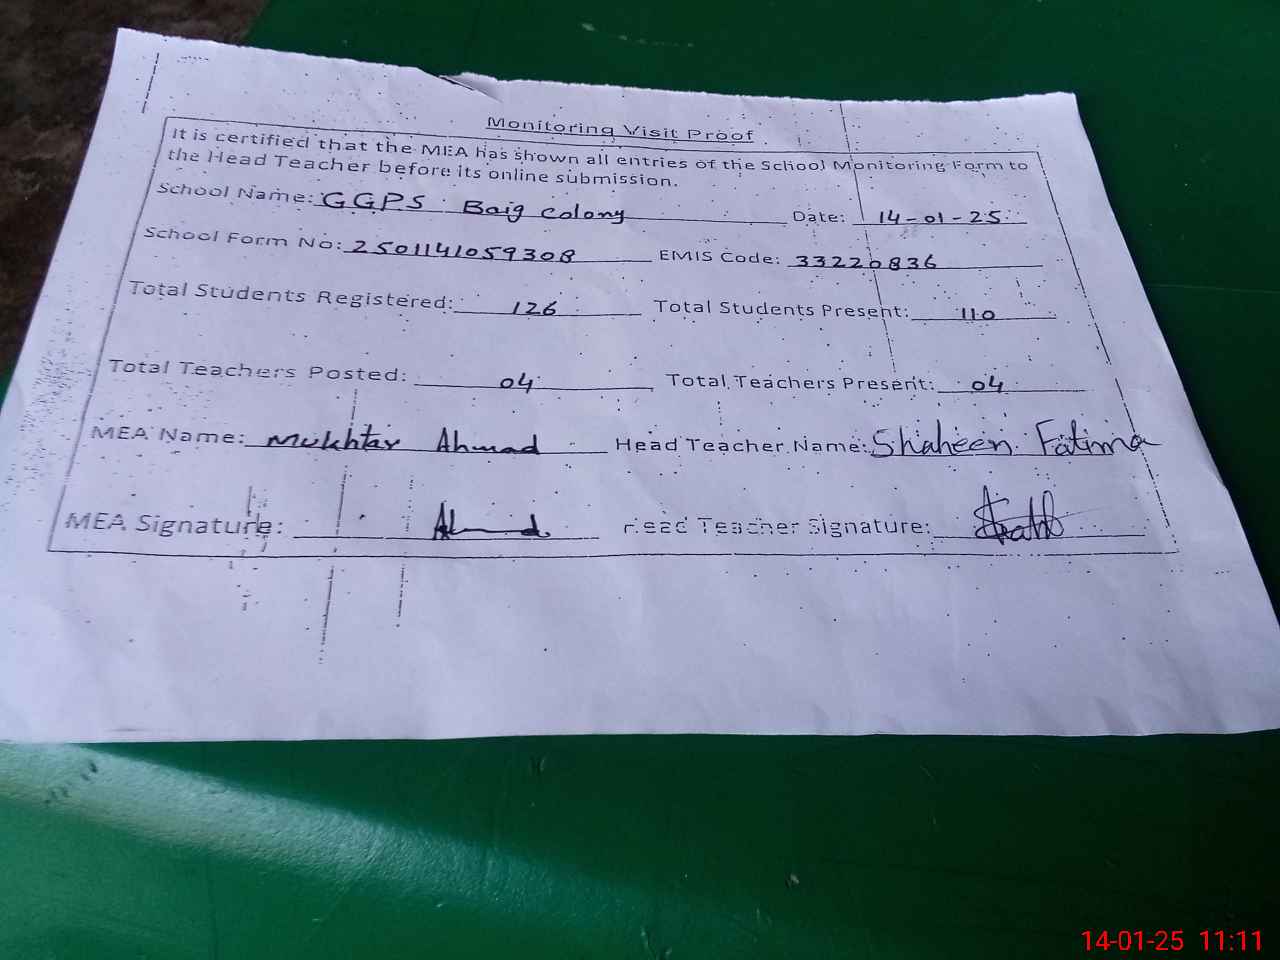 Monitoring Visit Proof
It is certified that the MEA has shown all entries of the School Monitoring Form to
the Head Teacher before its online submission.
School Name: GGPS Baig colony Date: 14-01-25
School Form No: 2501141059308 EMIS Code: 33220836
Total Students Registered: 126 Total Students Present: 110
Total Teachers Posted: 04 Total Teachers Present: 04
MEA Name: Mukhtar Ahmad Head Teacher Name: Shaheen Fatima
MEA Signature: Ahmad Head Teacher Signature:
14-01-25 11:11